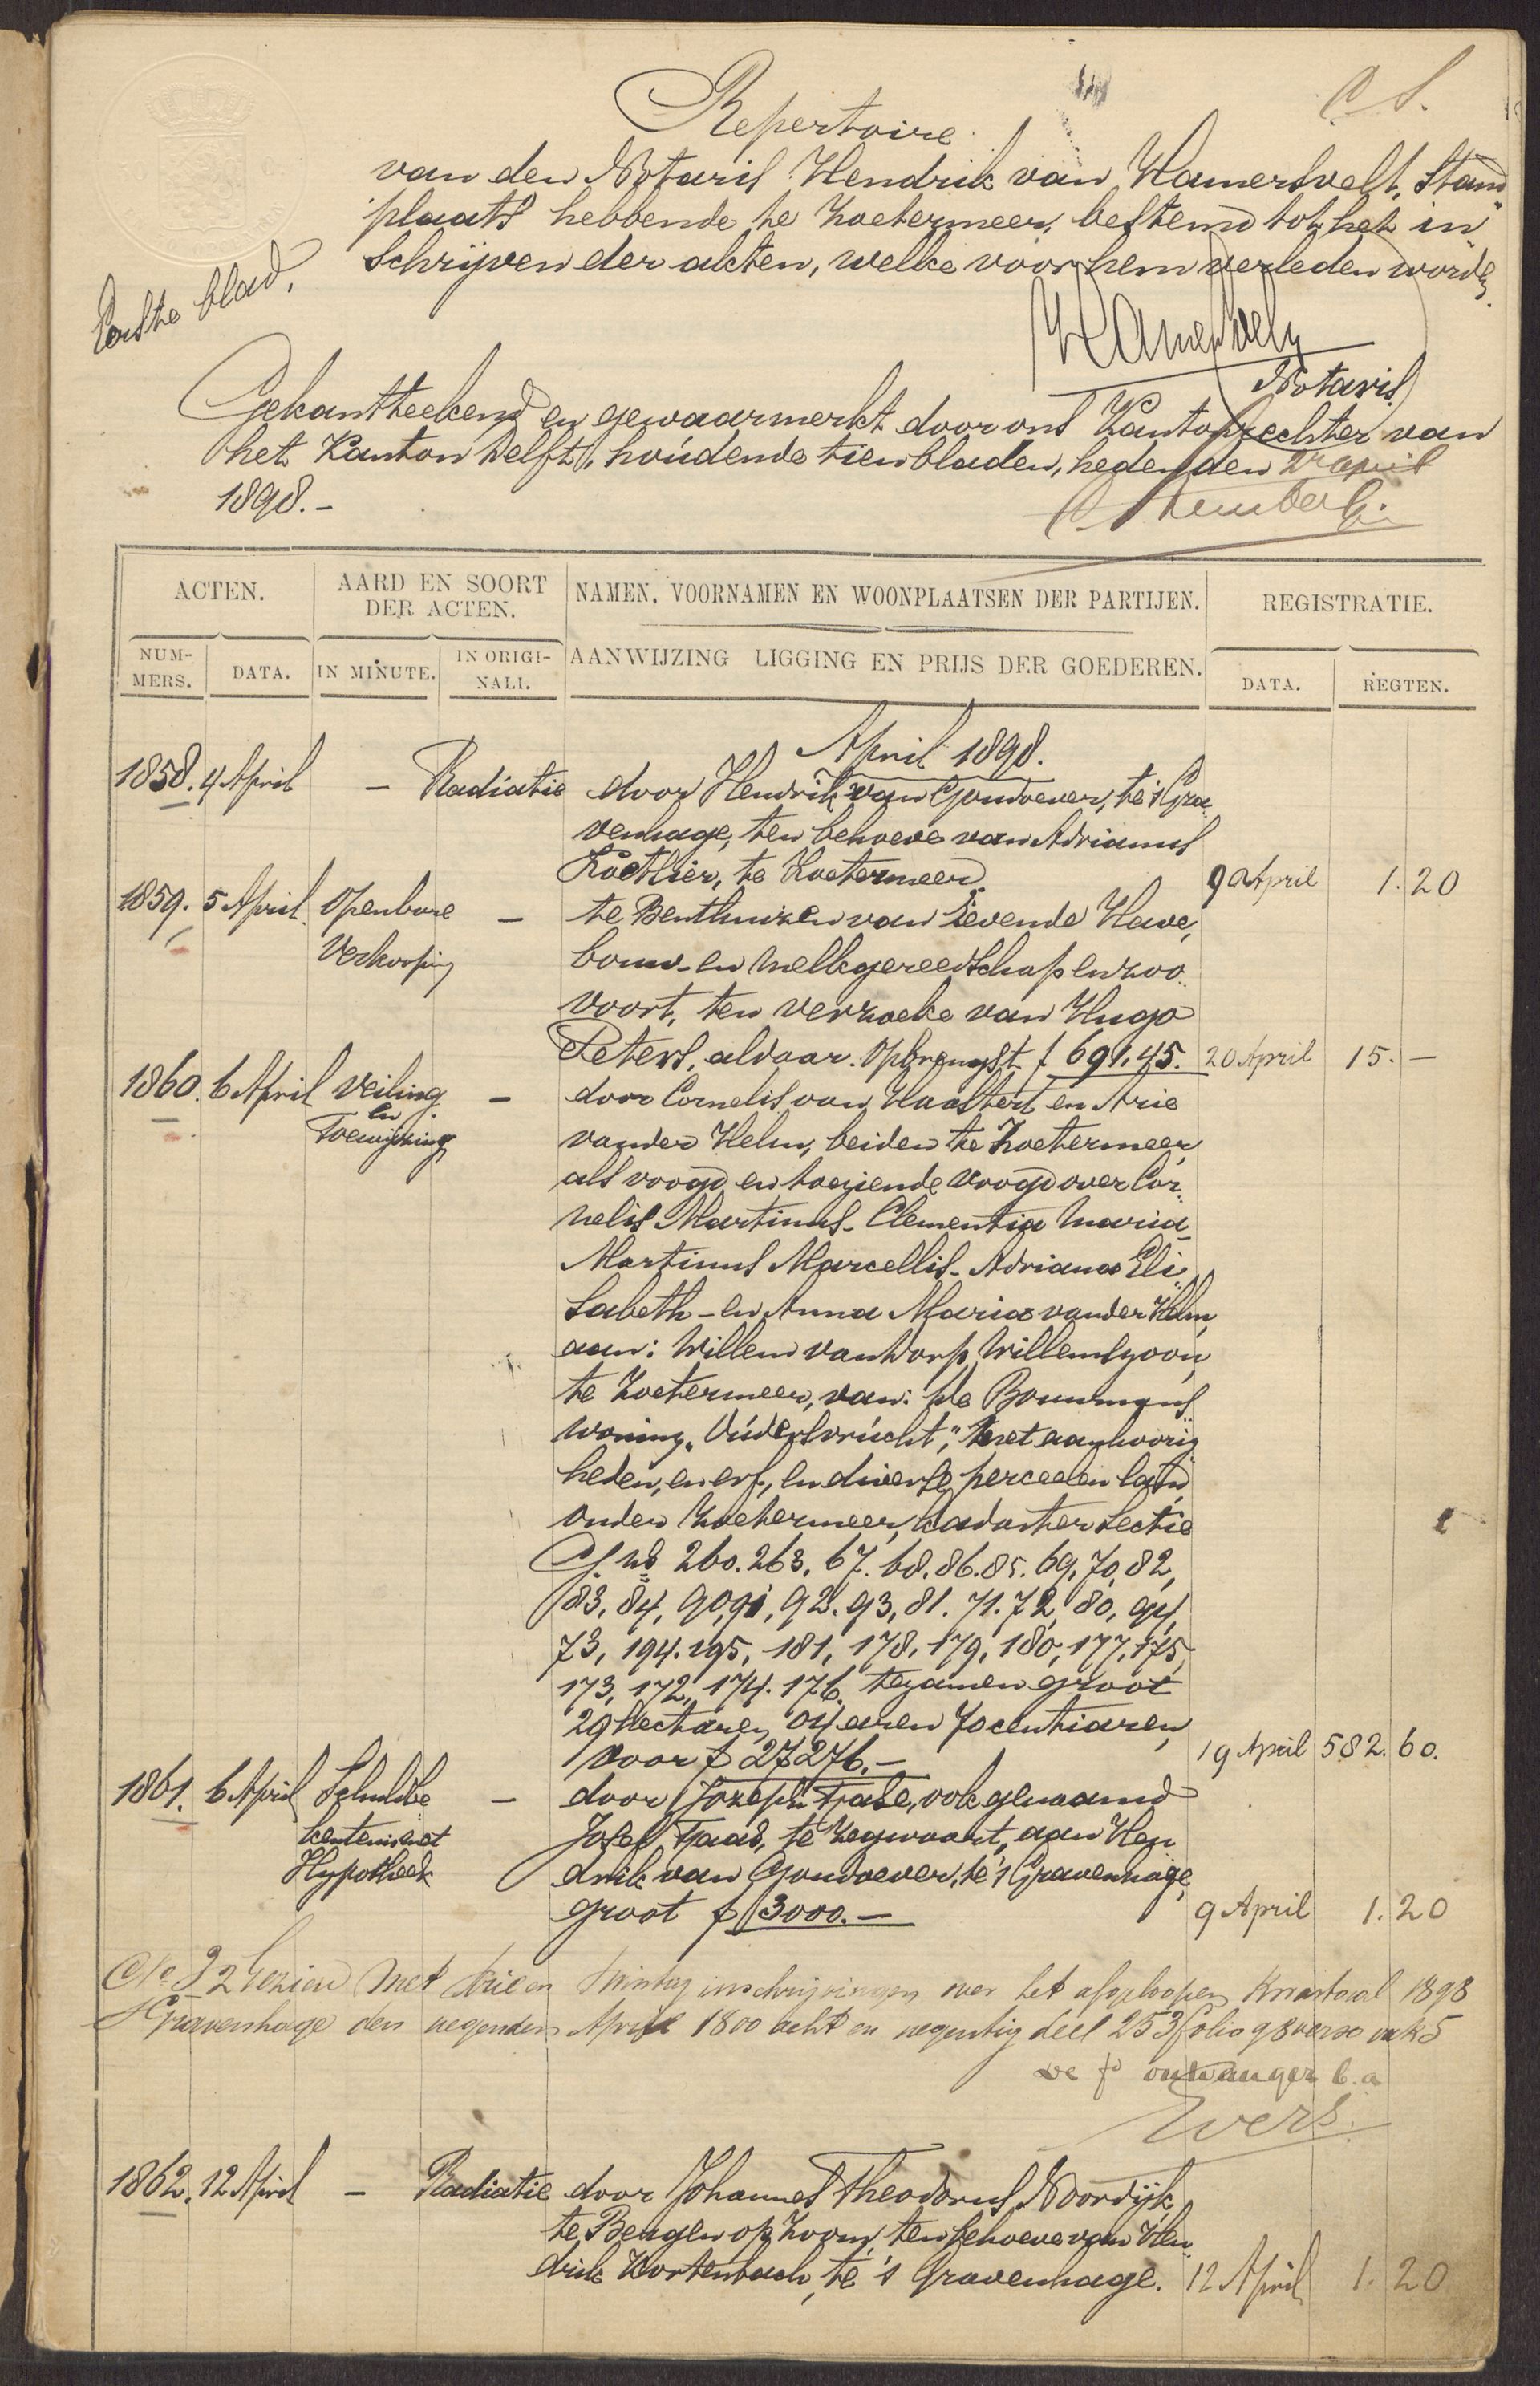 C. S.
Repertoire
van den Notaris Hendrik van Hamersvelt, Stand-
plaats hebbende te Zoetermeer, bestemd tot het in-
schrijven der akten, welke voor hem verleden worden.
Eerste blad.
Notaris
Gekantteekend en gewaarmerkt door ons Kantonrechter van
het Kanton Delft, houdende tien bladen, heden den 2n april
1898.-
ACTEN. AARD EN SOORT DER ACTEN. NAMEN, VOORNAMEN EN WOONPLAATSEN DER PARTIJEN. REGISTRATIE.
NUM-MERS. DATA. IN MINUTE. IN ORIGI-NALI. AANWIJZING LIGGING EN PRIJS DER GOEDEREN. DATA. REGTEN.
April 1898.
1858. 4 April - Radiatie door Hendrik van Goudoever, te 's Gra-
venhage, ten behoeve van Adrianus
te Zoetermeer. 9 April 1.20
1859. 5 April Openbare - te Benthuizen van Levende Have,
Verkooping bouw- en melkgereedschap enzoo-
voort, ten verzoeke van Hugo
Peters, aldaar. Opbrengst f 691.45. 20 April 15.-
1860. 6 April Veiling - door Cornelis van Haastert en Arie
en
Toewijzing van der Helm, beiden te Zoetermeer,
als voogd en toeziende voogd over Cor-
nelis Martinus- Clementia Maria-
Martinus Marcellis- Adriana Eli-
sabeth- en Anna Maria van der Helm,
aan: Willem van Dorp Willemszoon,
te Zoetermeer, van: de Bouwmans-
woning "Oúdersvrúcht", met aanhoorig-
heden, en erf, en diverse perceelen land
onder Zoetermeer, kadaster Sectie
C. ns 260. 263. 67. 68. 86. 85. 69, 70, 82,
83, 84, 90, 91, 92. 93, 81. 71. 72, 80, 94,
73, 194. 195, 181, 178, 179, 180, 177, 175,
173, 172, 174. 176. tezamen groot
29 Hectaren, 04 aren 70 centiaren,
voor f 27276.- 19 April 582.60.
1861. 6 April Schuldbe- - door Jozeph Fase, ook genaamd
kentenis met Josef Faas, te Zegwaart, aan Hen-
Hypotheek drik van Goudoever, te 's Gravenhage,
groot f 3000.- 9 April 1.20
No 32 Gezien met drie en twintig inschrijvingen over het afgeloopen Kwartaal 1898
's Gravenhage den negenden April 1800 acht en negentig deel 253 folio 98 verso vak 5
de fd ontvanger b.a
Evers.
1862. 12 April - Radiatie door Johannes Theodorus Noordijk,
te Bergen op Zoom, ten behoeve van Hen-
drik Kortenbach, te 's Gravenhage. 12 April 1.20